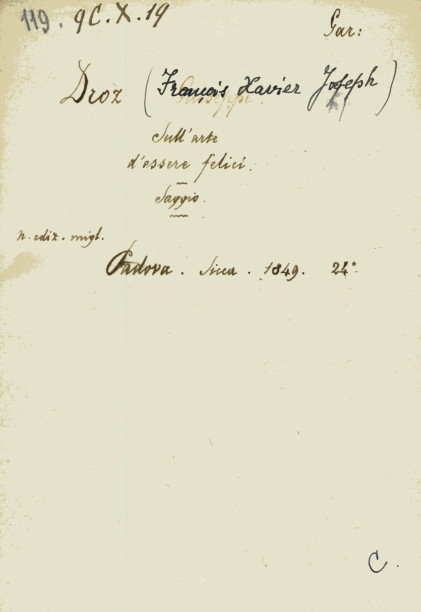 119. 9C.X.19
Gar:
Droz (Français Xavier Joseph)
Sull'arte
d'essere felici.
Saggio.
n. ediz. migl.
Padova. Sicca. 1849. 24°.
C.